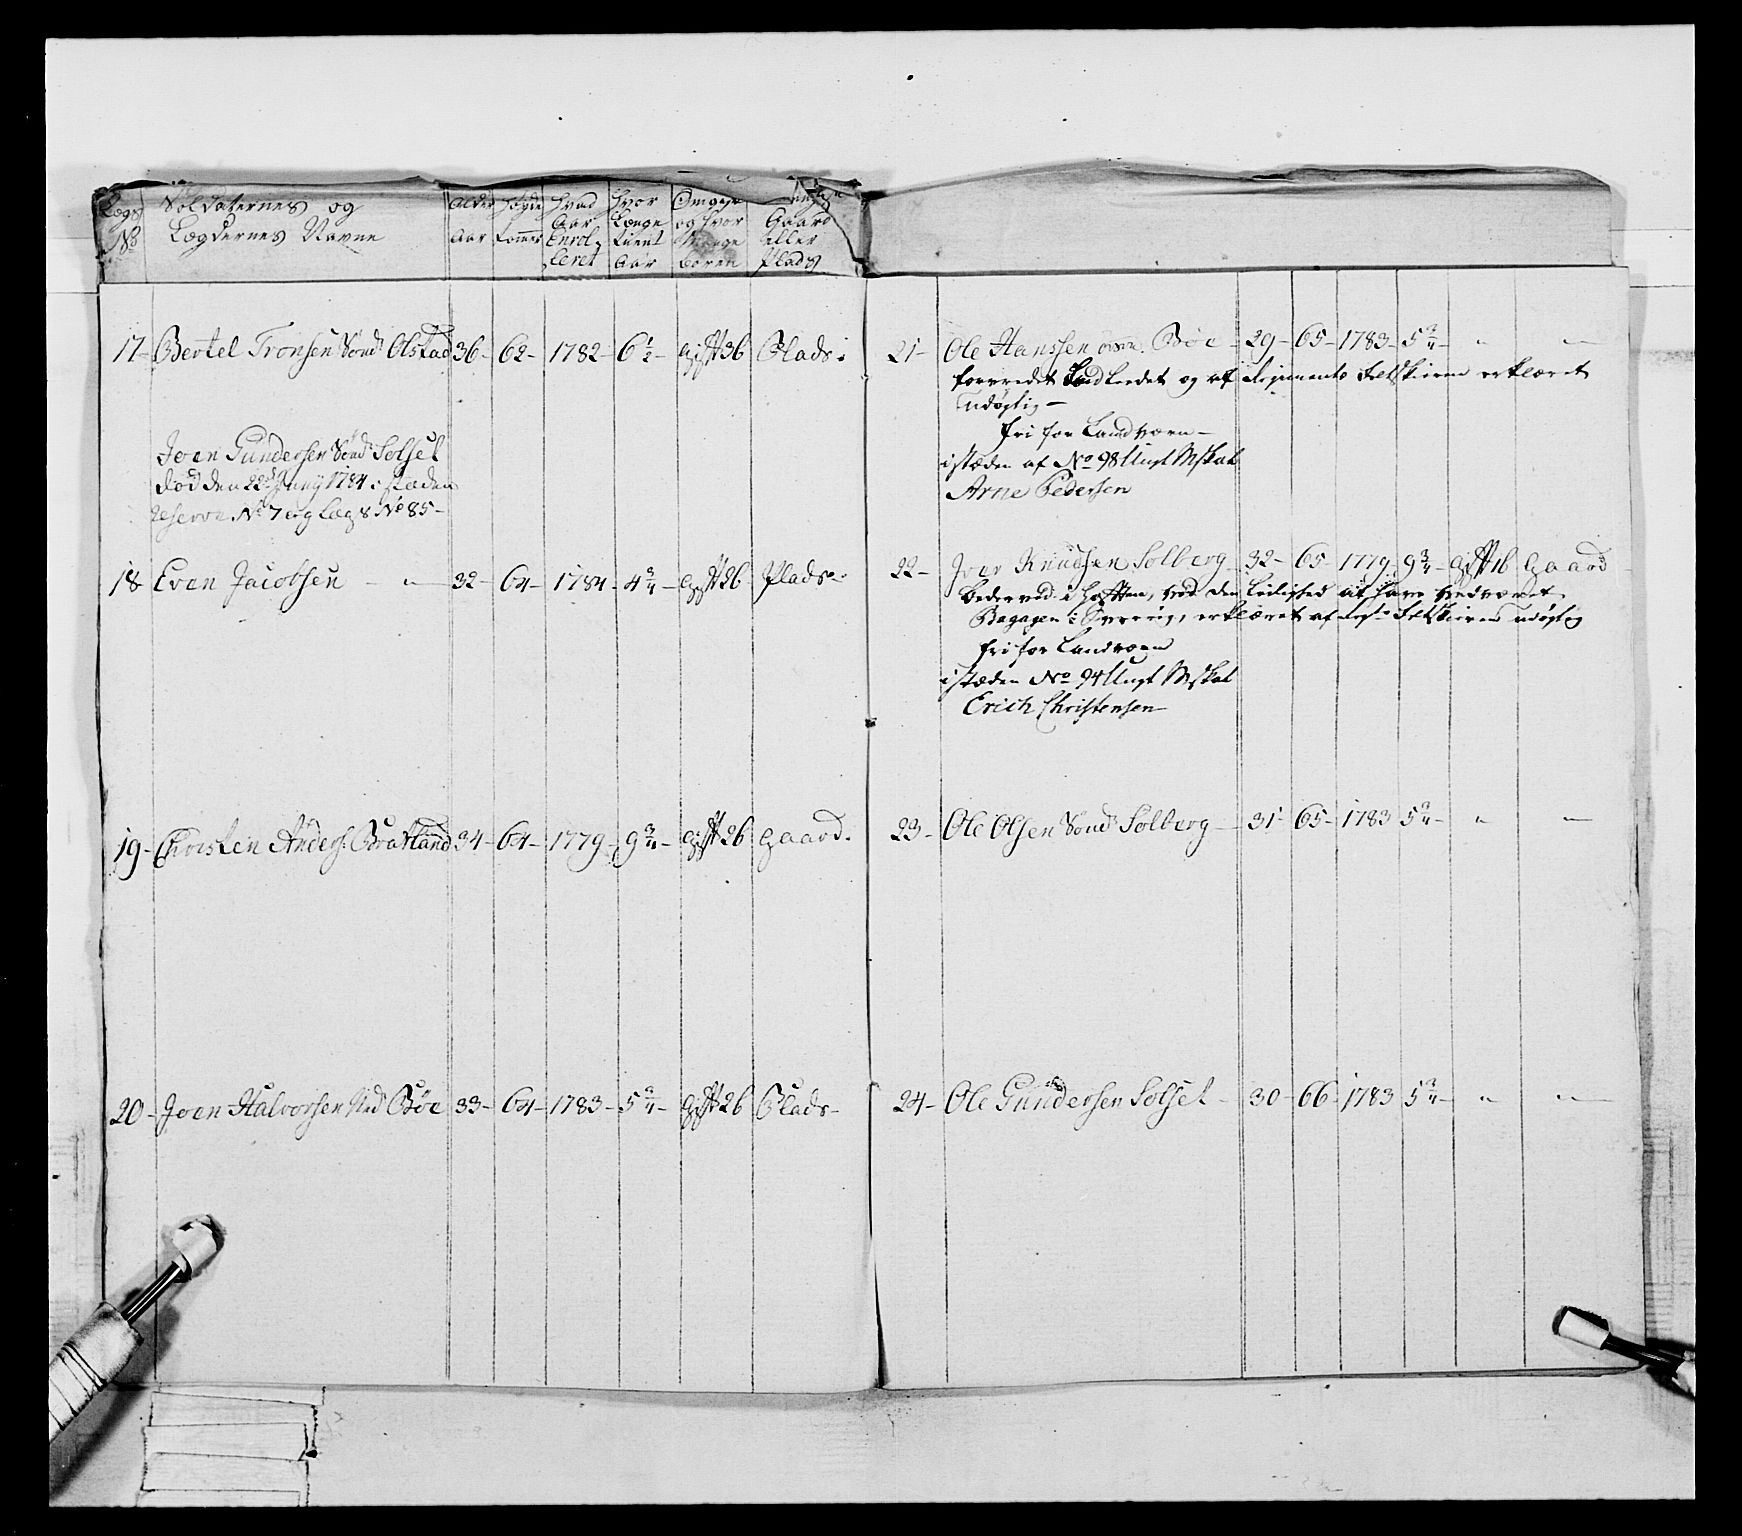 Lægs No
Soldaternes og
Lægdernes Navne
Alder Aar
Høyde Tommer
Hvad Aar Enrolleret
Hvor Længe tient Aar
og Hvor Mange Børen
Gaard eller Plads
17- Bertel Tronsen Sønd: Olstad 36- 62- 1782- 6 1/2- gift 3b Plads:
Joen Gundersen Sønd: Solset
død den 22d Juny 1784 i stæden
Reserve No 7 og Lægs No 85-
18 Even Jacobsen - " - 32- 64- 1784- 4 3/4- gift 2b Plads-
19- Christen Anders: Bratland 34- 64- 1779- 9 3/4- gift 2b gaard.
20- Joen Halvorsen Ned: Bøe 33- 64- 1783- 5 3/4- gift 2b Plads-
21- Ole Hanssen Bøe - 29- 65- 1783- 5 3/4- " "
forvredet Leedet og af Regiments Feltskieren erklæret
udøgtig-
fri for Landværn-
istæden af No 98 Ungt Mskab
Arne Pedersen
22- Joer Knudsen Solberg 32- 65 1779- 9 3/4- gift 1b gaard
Bedervved i Hofften, ved den Leilighed at have vedværet
Bagagen i Sverrig, erklæret af Feltskieren udøgtig
fri for Landværn
istæden No 94 Ungt Mskab
Erich Christensen-
23- Ole Olsen Sønd: Solberg - 31- 65- 1783 5 3/4- " "
24- Ole Gundersen Solset - 30- 66- 1783 5 3/4- " "